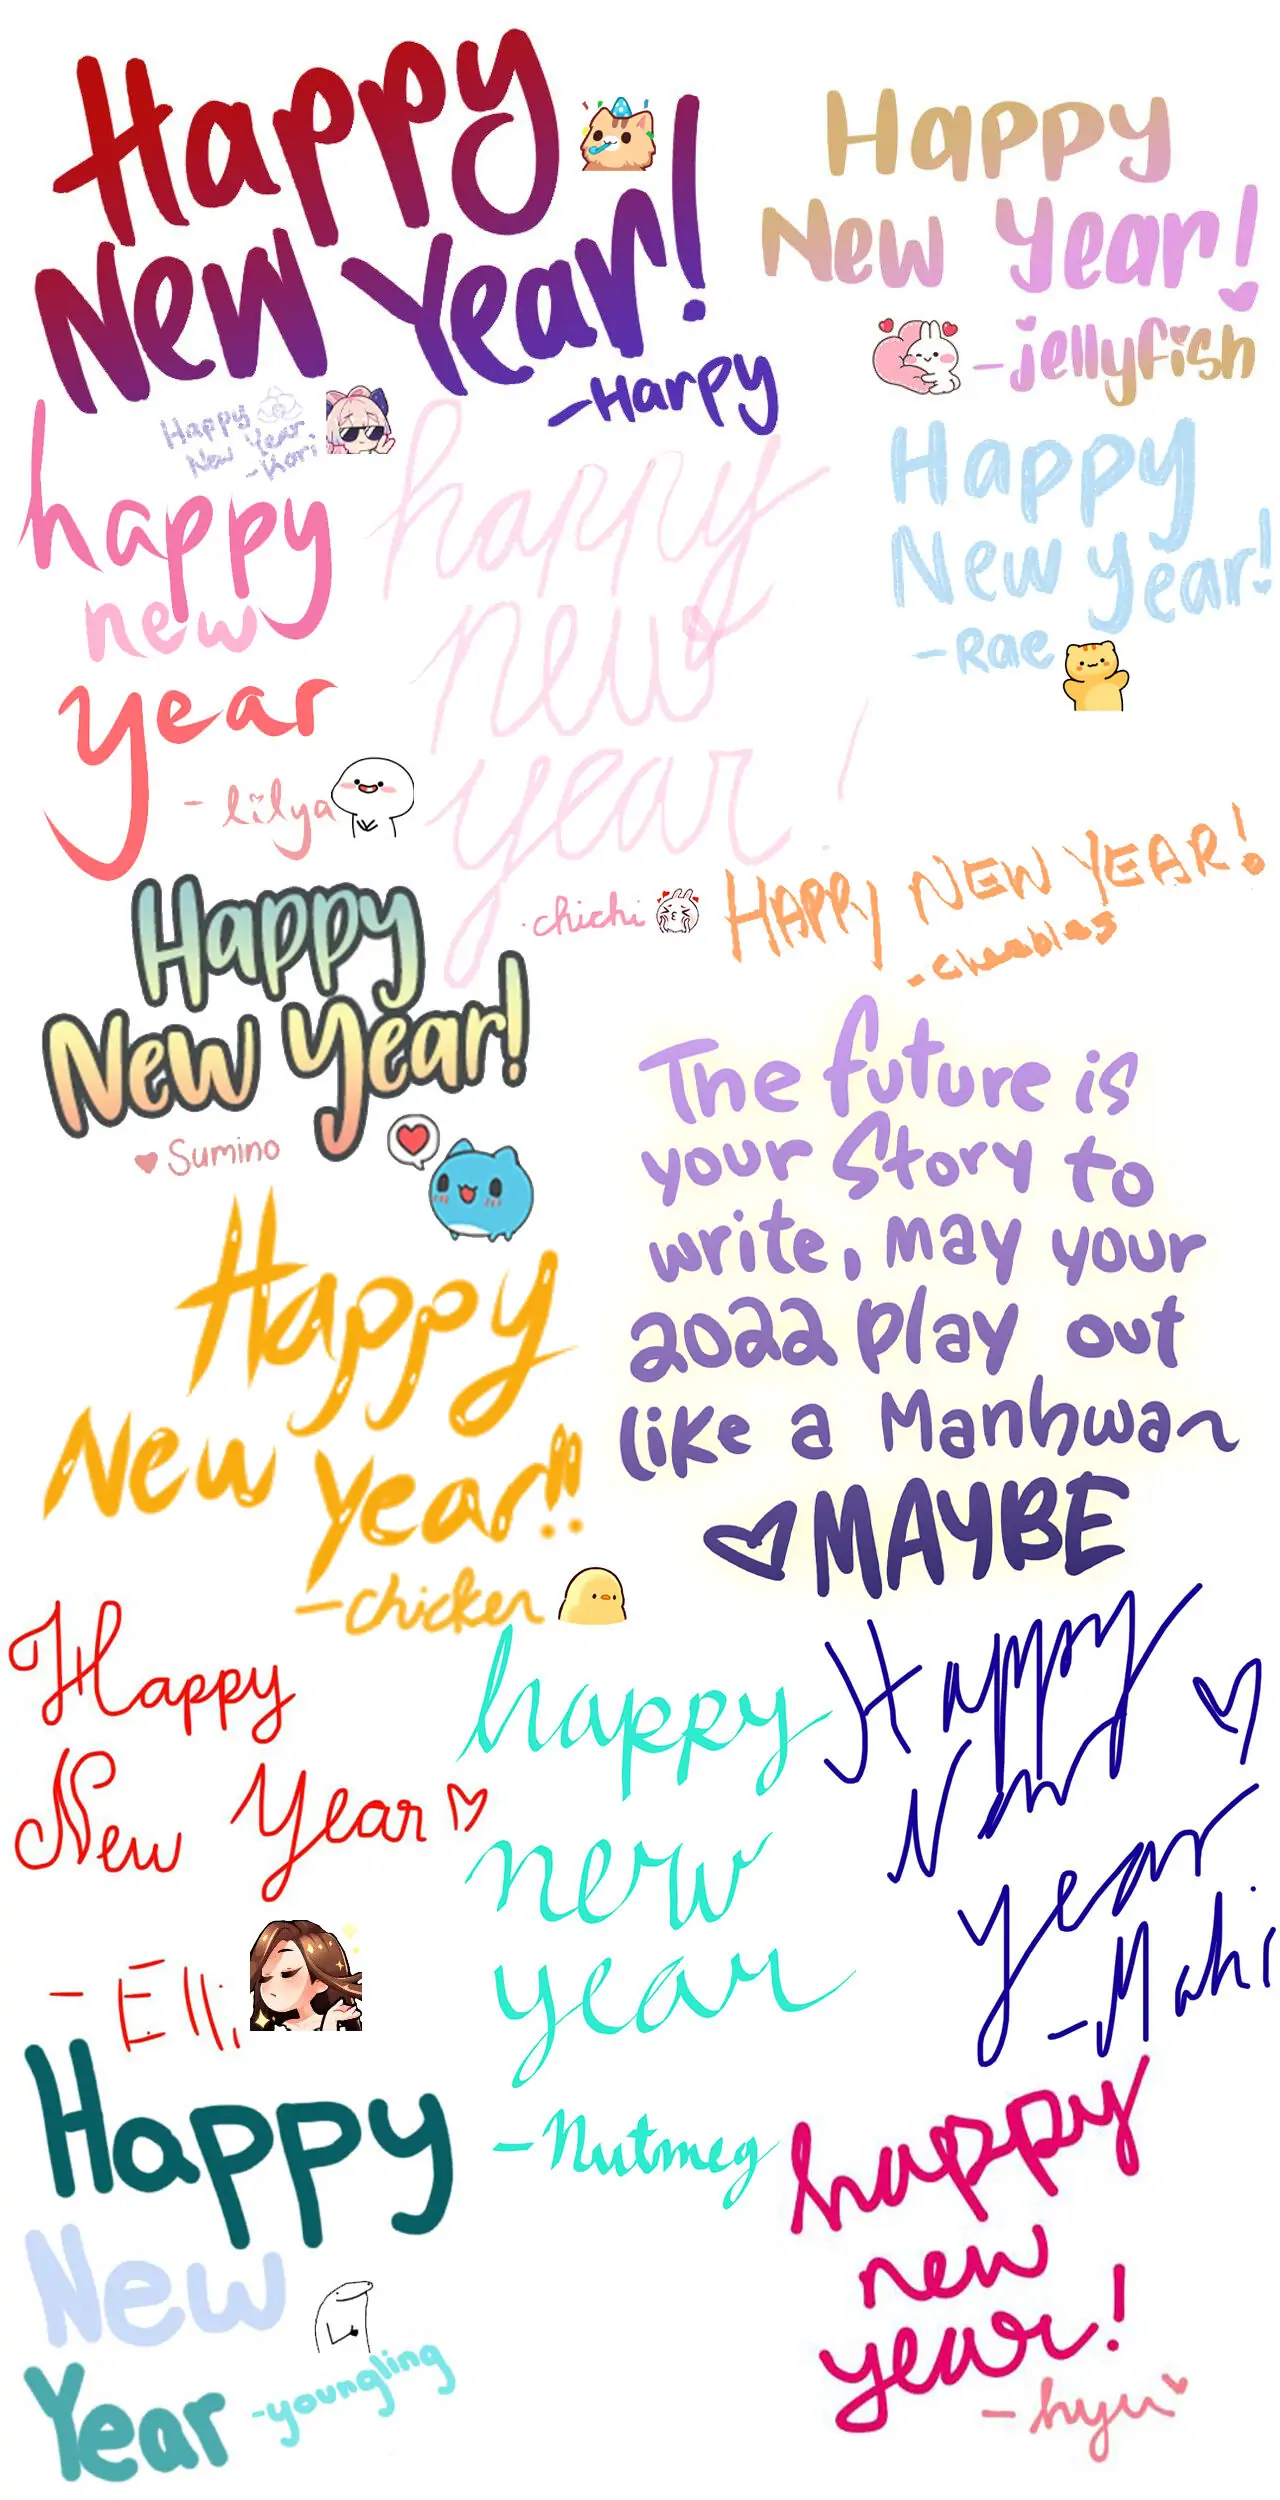 Happy
New Year!
-Harpy
Happy
New Year!
-jellyfish
Happy
New Year
-Kori
happy
new
year
-lilya
happy
new
year!
-chichi
Happy
New Year!
-Rae
HAPPY NEW YEAR!
Happy
New Year!
Sumino
The future is
your Story to
write, may your
2022 play out
like a Manhwa~
MAYBE
Happy
New Year!!
-chicken
Happy
New Year
-Elli
happy
new
year
-Nutmeg
Happy
New
year
-Machi
Happy
New
Year
-youngling
happy
new
year!
-hyu